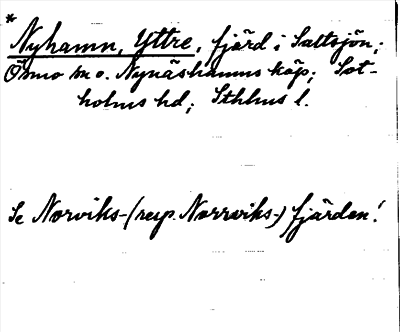 *
Nyhamn, Yttre, fjärd i Saltsjön;
Ösmo sn o. Nynäshamns köp; Sot-
holms hd; Sthlms l.
Se Norviks-(resp. Norrviks-) fjärden!